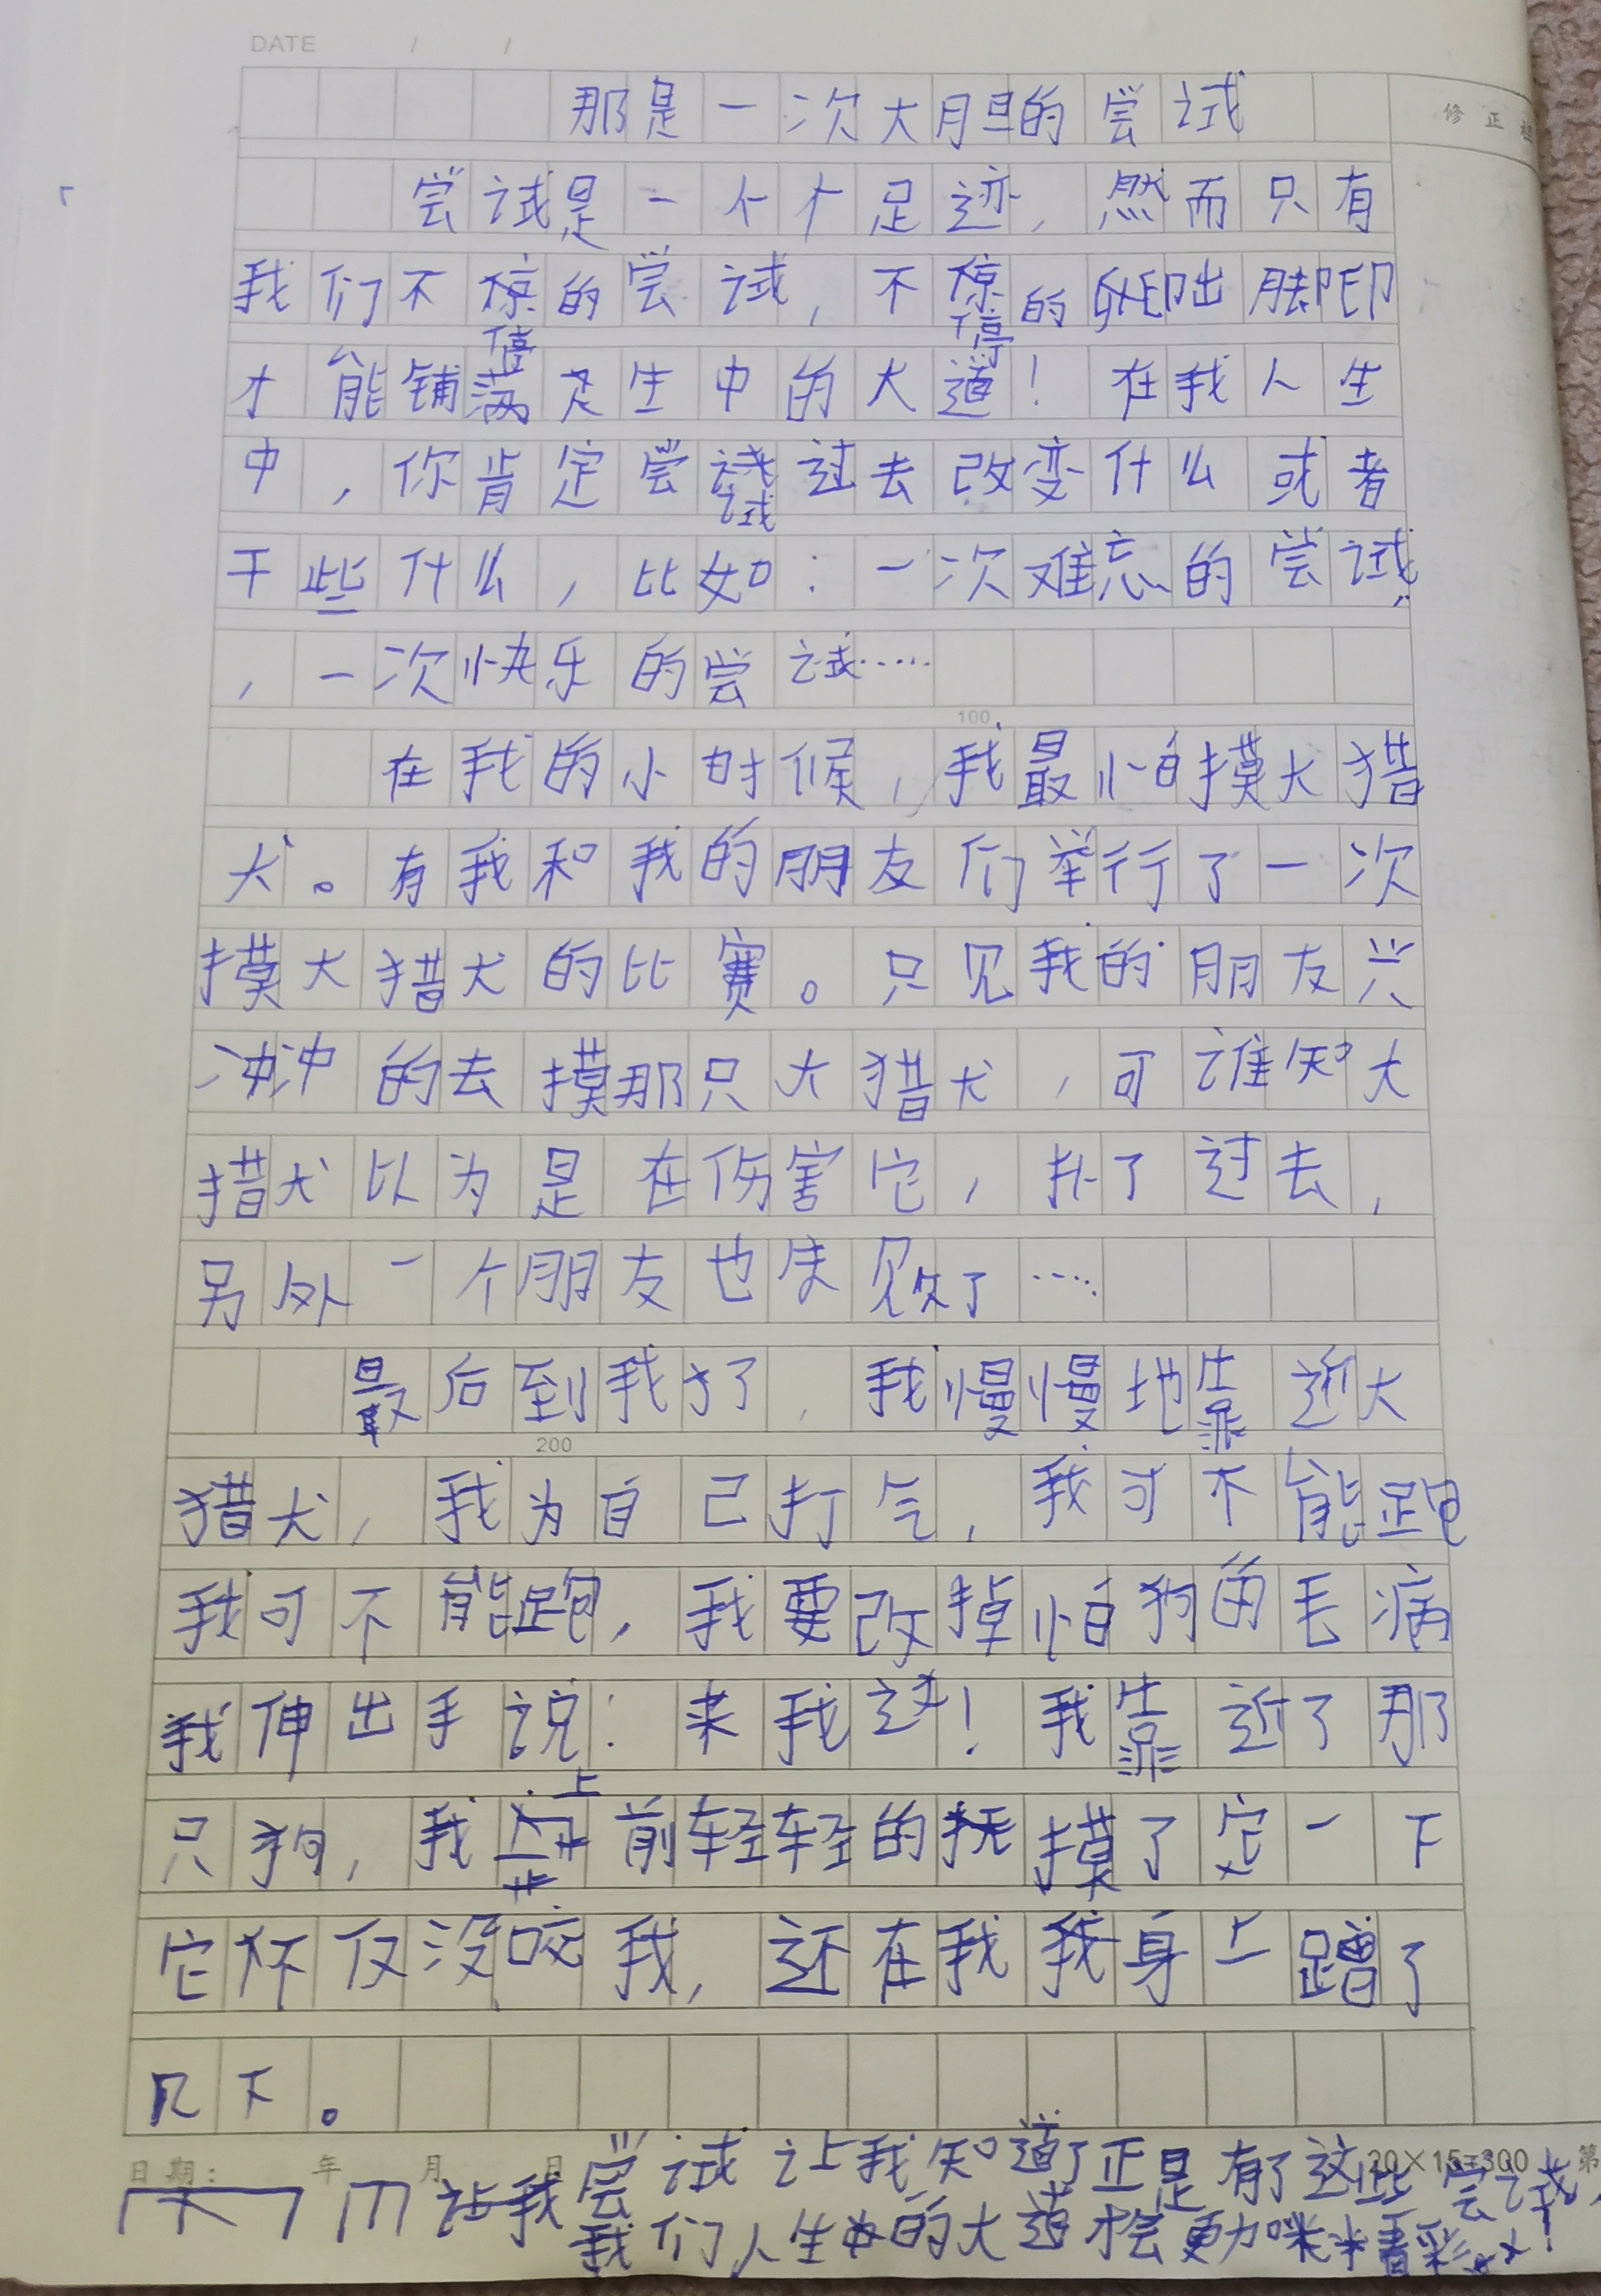 DATE / /
修正
那是一次大胆的尝试
尝试是一个个足迹,然而只有
我们不惊的尝试,不惊的印出脚印
停 停
才能铺满人生中的大道!在我人生
中,你肯定尝试过去改变什么或者
试
干些什么,比如:一次难忘的尝试,
,一次快乐的尝试……
100
在我的小时候,我最怕摸大猎
犬。有我和我的朋友们举行了一次
摸大猎犬的比赛。只见我的朋友兴
冲冲的去摸那只大猎犬,可谁知大
猎犬以为是在伤害它,扑了过去,
另外一个朋友也失败了……
最后到我了,我慢慢地靠近大
200
猎犬,我为自己打气,我可不能跑
我可不能跑,我要改掉怕狗的毛病
我伸出手说:来我这!我靠近了那
上
只狗,我前轻轻的抚摸了它一下
它不仅没咬我,还在我我身上蹭了
几下。
日期: 年 月 日
20×15=300 第
尝试让我知道了正是有了这些尝试,
我们人生中的大道才会更加精彩!